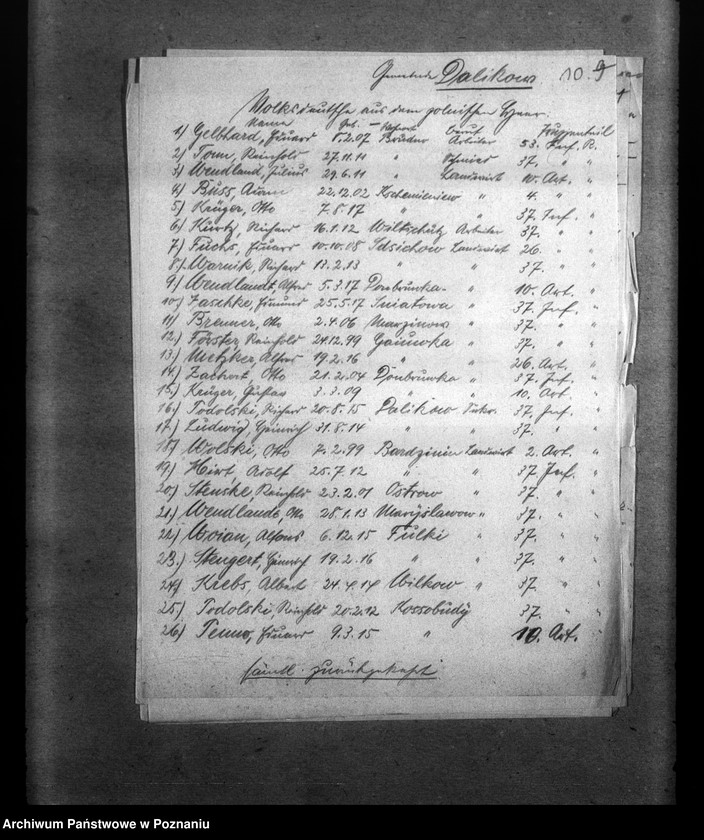 Gemeinde Dalikow. 10. 9
Volksdeutsche aus dem polnischen Heer.
Name Geb. Wohnort Beruf Truppenteil
1) Gelbhard, Eduard 5.2.07 Bruder Arbeiter 53. Inf. R.
2) Tonn, Reinhold 27.11.11 " Schmied 37. " "
3) Wendland, Julius 29.6.11 " Landwirt 10. Art. "
4) Buss, 22.12.02 " 4. " "
5) Krüger, Otto 7.8.17 " " 37. Inf. "
6) Kurtz, Richard 16.1.12 Wiltschütz Arbeiter 37. " "
7) Fuchs, Eduard 10.10.08 Idzichow Landwirt 26. " "
8) Warnik, Richard 13.2.13 " " 37. " "
9) Wendlandt, Alfred 5.3.17 Dombrowka " 10. Art. "
10) Zaschke, Edmund 25.5.17 Sniatowa " 37. Inf. "
11) Brenner, Otto 2.4.06 Marzinow " 37. " "
12) Förster, Reinhold 24.12.99 " 37. " "
13) Metzker, Alfred 19.2.16 " " 26. Art. "
14) Zachert, Otto 21.2.04 Dombrowka " 37. Inf. "
15) Krüger, Gustav 3.3.09 " " 10. Art. "
16) Podolski, Richard 20.8.15 Dalikow 37. Inf. "
17) Ludwig, Heinrich 31.8.14 " " 37. " "
18) Wolski, Otto 7.2.99 Bardzinin Landwirt 2. Art. "
19) Hirt, Adolf 25.7.12 " " 37. Inf. "
20) Stenske, Reinhold 23.2.01 Ostrow " 37. " "
21) Wendlandt, Otto 28.1.13 Maryslawow " 37. " "
22) Woian, Alfons 6.12.15 Fulki " 37. " "
23) Stengert, Heinrich 19.2.16 " " 37. " "
24) Krebs, Albert 24.4.14 Wilkow " 37. " "
25) Podolski, Reinhold 20.2.12 Kossobudy 37. " "
26) Penno, Eduard 9.3.15 " 10. Art. "
sämtl. zurückgekehrt
Archiwum Państwowe w Poznaniu